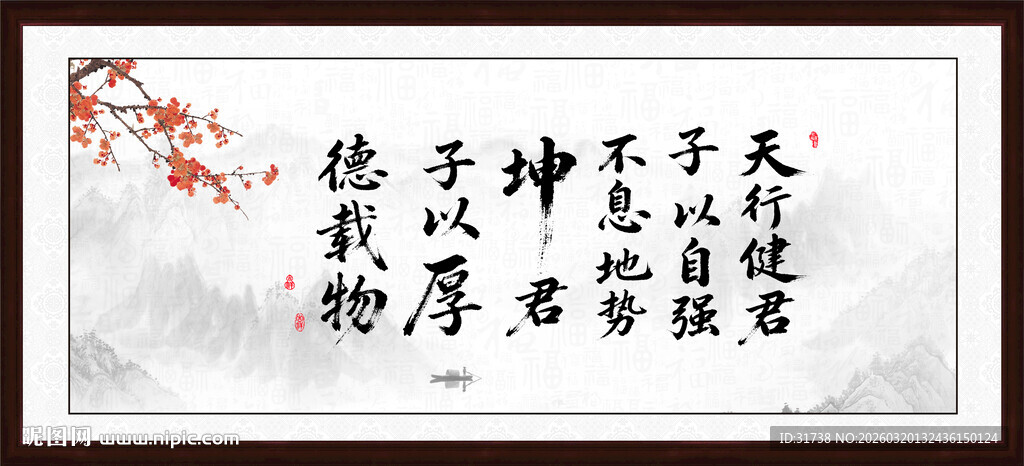 天行健君
子以自强
不息地势
坤君
子以厚
德载物
昵图网 www.nipic.com
ID:31738 NO:20260320132436150124